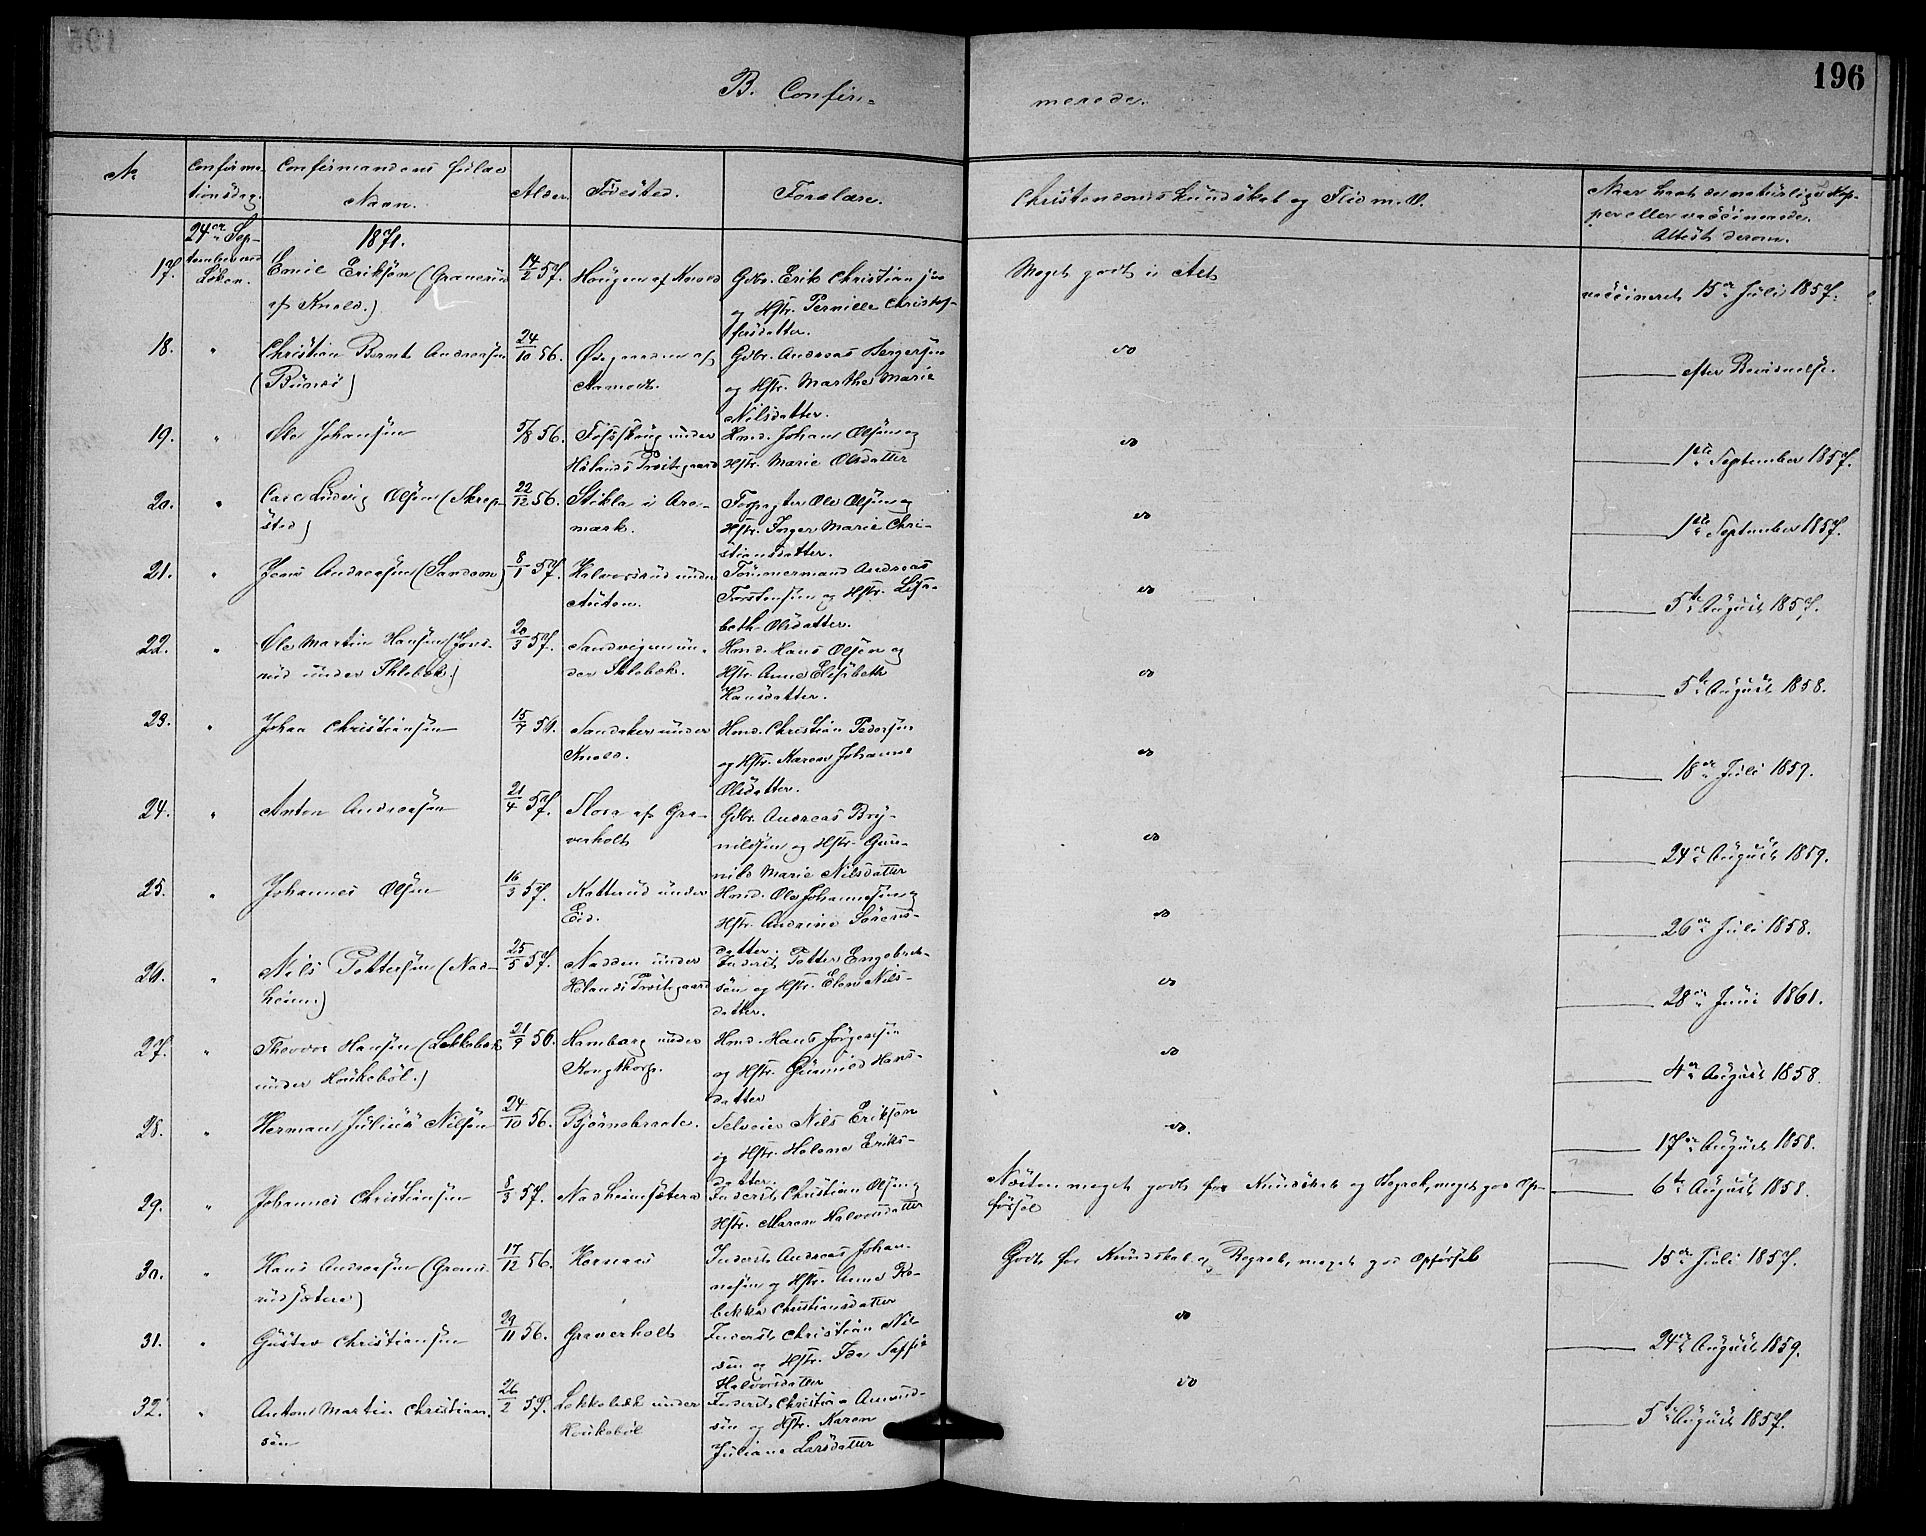 196
B. Confir=
merede.
No
Confirma-
tionsdag.
Confirmandens fulde
Navn.
Alder.
Fødested.
Forældre.
Christendomskundskab og Flid m. V.
Naar havt de naturlige Kop-
per eller vaccinerede.
Attest derom.
24de Sep-
tember ved
Løken.
1871.
17.
Emil Eriksøn (Granerud
af Knold.)
14/2 57.
Haugen af Knold
Gdbr. Erik Christiansøn
og Hstr. Pernille Christof-
fersdatter.
Meget godt i Alt
vaccineret 15de Juli 1857.
18.
"
Christian Bernt Andreasøn
(Bunes)
24/10 56.
Ødegaarden af
Aamodt.
Gdbr. Andreas Torgersøn
og Hstr. Marthe Marie
Nilsdatter.
do
efter Bevisnelse.
19.
"
Ole Johansøn
5/8 56.
Fosskoug under
Hølands Præstegaard
Hmd. Johan Olsøn og
Hstr. Marie Olsdatter
do
1ste September 1857.
20.
"
Carl Ludvig Olsøn (Skrep-
sted)
22/12 56.
Stikla i Are-
mark.
Forpagter Ole Olsøn og
Hstr. Inger Marie Chri-
stiansdatter.
do
1ste September 1857.
21.
"
Jens Andreasøn (Sandem)
8/1 57.
Halvorsrud under
Auten.
Tømmermand Andreas
Torstensøn og Hstr. Lisa-
beth Olsdatter.
do
5te August 1857.
22.
"
Ole Martin Hansøn (Jons-
rud under Ihlebæk.)
20/3 57.
Sandvigen un-
der Ihlebæk.
Hmd. Hans Olsøn og
Hstr. Anne Elisabeth
Hansdatter.
do
5te August 1858.
23.
"
Johan Christiansøn
15/7 56.
Sandaker under
Knold.
Hmd. Christian Pedersøn
og Hstr. Karen Johanne
Olsdatter.
do
18de Juli 1859.
24.
"
Anton Andreasøn
21/4 57.
Flora af Gra-
verholt
Gdbr. Andreas Bry-
nildsøn og Hstr. Gun-
nild Marie Nilsdatter
do
24de August 1859.
25.
"
Johannes Olsøn
16/3 57.
Katterud under
Eid.
Hmd. Ole Johannesøn og
Hstr. Andrine Sørens-
datter.
do
26de Juli 1858.
26.
"
Nils Pettersøn (Nad-
heim.)
25/5 57.
Nadden under
Hølands Præstegaard
Inderst Petter Engebret-
søn og Hstr. Elen Nils-
datter.
do
28de Juni 1861.
27.
"
Theodor Hansøn (Løkkebæk
under Houkebøl.)
21/9 56.
Hamborg under
Kongthorp.
Hmd. Hans Jørgensøn
og Hstr. Gunnild Hans-
datter
do
4de August 1858.
28.
"
Herman Julius Nilsøn
24/10 56.
Bjørnebraate.
Selveier Nils Eriksøn
og Hstr. Helene Eriks-
datter.
do.
17de August 1858.
29.
"
Johannes Christiansøn
8/3 57.
Nadheimsætera
Inderst Christian Olsøn og
Hstr. Maren Halvorsdatter
Næsten meget godt for Kundskab og Begreb, meget god Op-
førsel
6te August 1858.
30.
"
Hans Andreasøn (Grans-
rudsætera)
17/12 56.
Hornaas
Inderst Andreas Johan-
nesøn og Hstr. Anne Re-
bekka Christiansdatter
Godt for Kundskab og Begreb, meget god Opførsel
15de Juli 1857.
31.
"
Gustav Christiansøn
29/11 56.
Graverholt
Inderst Christian Nil-
søn og Hstr. Ida Saffie
Halvorsdatter
do
24de August 1859.
32.
"
Anton Martin Christian-
søn
26/2 57.
Løkkebæk under
Houkebøl
Inderst Christian Amund-
søn og Hstr. Karen
Juliane Larsdatter
do
5te August 1857.